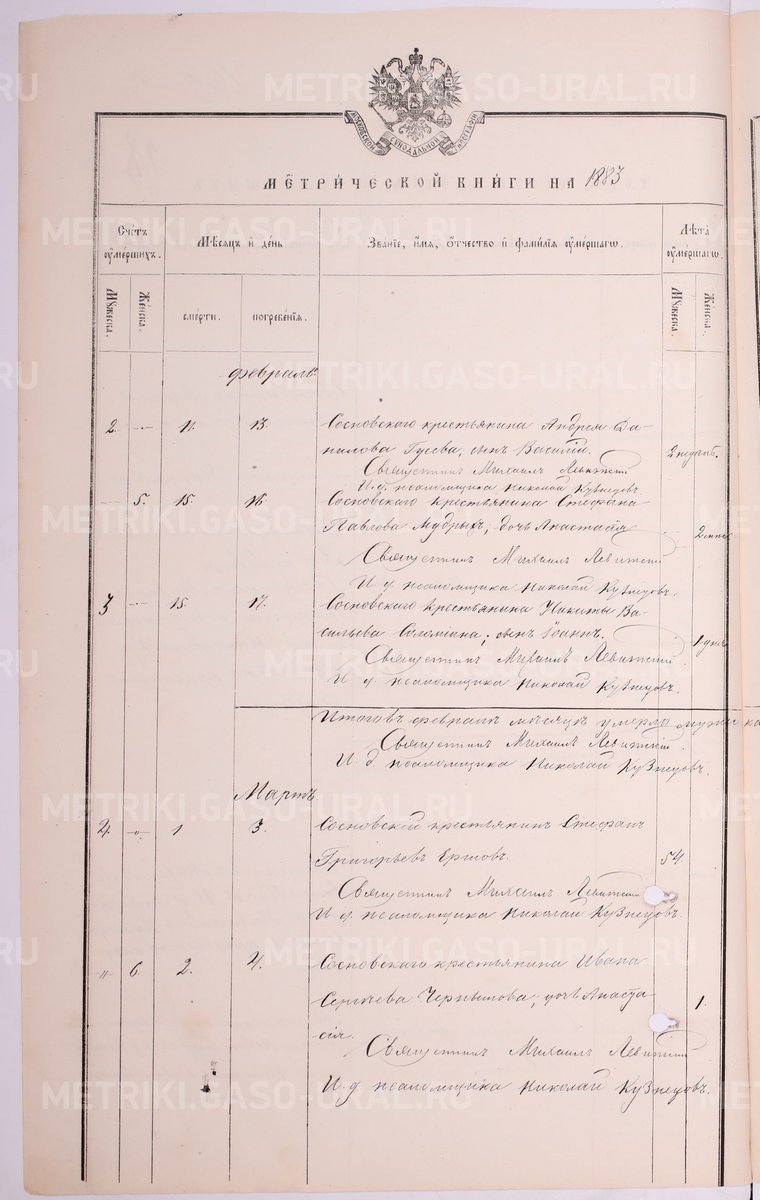 МОСКОВСКОЙ СѴНОДАЛЬНОЙ ТИПОГРАФІИ
МЕТРИЧЕСКОЙ КНИГИ НА 1883
Счетъ умершихъ.
Мѣсяцъ и день
Званіе, имя, отчество и фамилія умершаго.
Лѣта умершаго.
Мужеска.
Женска.
смерти.
погребенія.
Мужеска
Женска.
Февраль
2. 11. 13. Сосновскаго крестьянина Андрея Да-
нилова Гусева, сынъ Василій.
Священникъ Михаилъ Левитскій
И. д. псаломщика Николай Кузнецовъ
5. 15. 16. Сосновскаго крестьянина Стефана
Павлова Мудрыхъ, дочь Анастасія
Священникъ Михаилъ Левитскій
И. д. псаломщика Николай Кузнецовъ.
3 15. 17. Сосновскаго крестьянина Никиты Ва-
сильева сынъ Іоаннъ.
Священникъ Михаилъ Левитскій
И. д. псаломщика Николай Кузнецовъ.
февралѣ мѣсяцѣ умерло
Священникъ Михаилъ Левитскій.
И. д. псаломщика Николай Кузнецовъ.
Мартъ
4. " 1 3. Сосновскій крестьянинъ Стефанъ
Григорьевъ Ершовъ. 54.
Священникъ Михаилъ Левитскій
И. д. псаломщика Николай Кузнецовъ.
" 6. 2. 4. Сосновскаго крестьянина Ивана
Сергѣева Чернышова, дочь Анаста- 1.
сія.
Священникъ Михаилъ Левитскій
И. д. псаломщика Николай Кузнецовъ.
METRIKI.GASO-URAL.RU